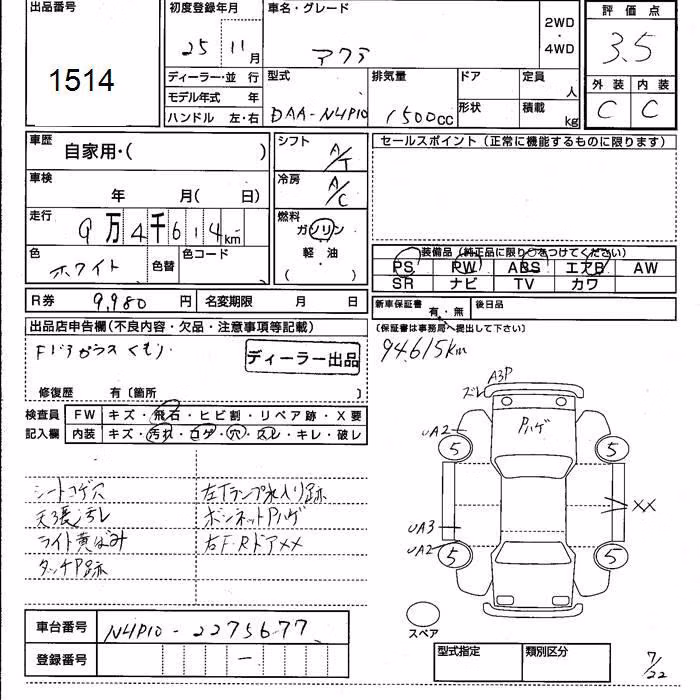 出品番号
1514
初度登録年月
25 11月
車名・グレード
アクア
2WD
・
4WD
評価点
3.5
外装 内装
C C
ディーラー・並 行
モデル年式 年
ハンドル 左・右
型式
DAA-N4P10
排気量
1500cc
ドア
形状
定員
人
積載
kg
車歴
自家用・( )
車検
年 月( 日)
走行
9万4千614km
色
ホワイト
色替
色コード
シフト
A/T
冷房
A/C
燃料
ガソリン
・
軽・油
( )
セールスポイント(正常に機能するものに限ります)
装備品(純正品に限り○をつけてください)
PS PW ABS エアB AW
SR ナビ TV カワ
R券 9,980 円 名変期限 月 日
新車保証書 有・無 後日品
(保証書は事務局へ提出して下さい)
94,615km
出品店申告欄(不良内容・欠品・注意事項等記載)
Fドアガラスくもり
ディーラー出品
修復歴 有〔箇所 〕
検査員
記入欄
FW キズ・飛石・ヒビ割・リペア跡・X要
内装 キズ・汚れ・コゲ・穴・スレ・キレ・破レ
シートコゲ穴
天張汚レ
ライト黄ばみ
タッチP跡
左Tランプ水入り跡
ボンネットPハゲ
右F・RドアXX
A3P
ズレ
Pハゲ
UA2
5
5
XX
UA3
UA2
5
5
スペア
車台番号 N4P10-2275677
登録番号 -
型式指定 類別区分
7/22